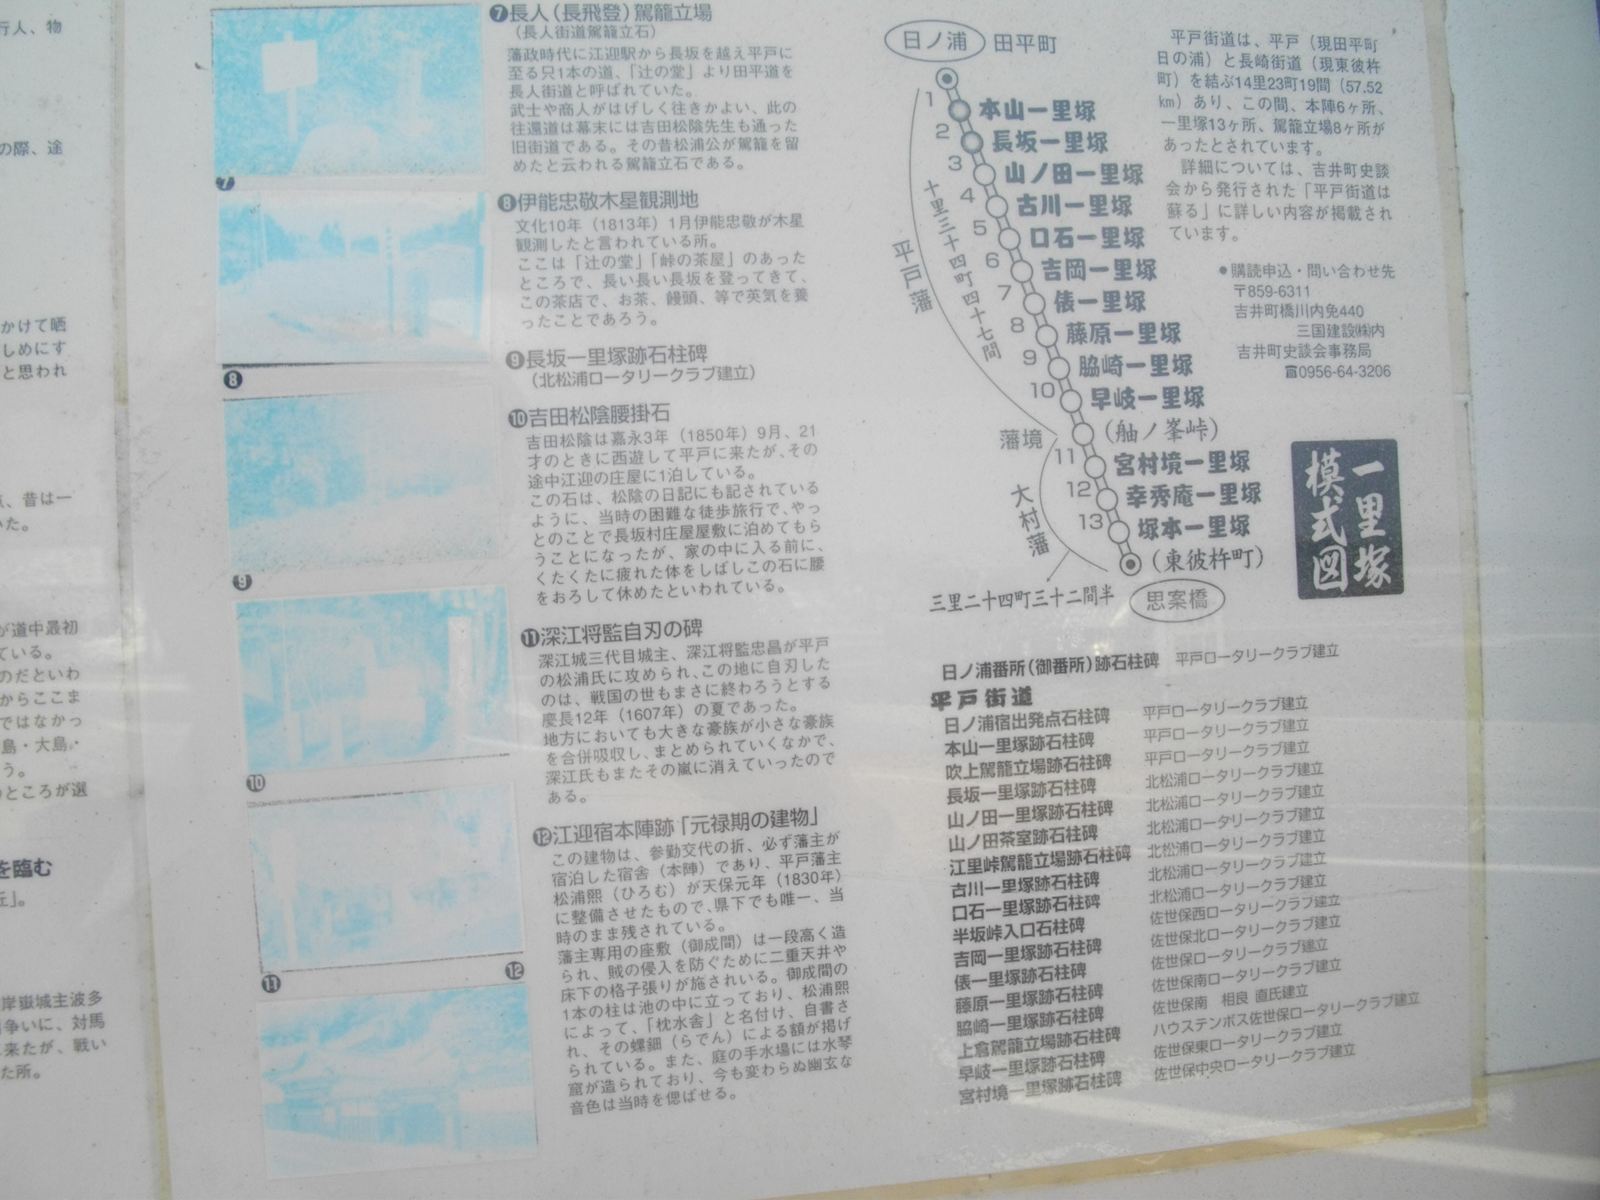 行人、物
の際、途
かけて晒
しめにす
と思われ
点、昔は一
いた。
が道中最初
ている。
のだといわ
からここま
ではなかっ
島・大島・
う。
のところが選
を臨む
丘」。
岸嶽城主波多
争いに、対馬
来たが、戦い
た所。
❼長人(長飛登)駕籠立場
(長人街道駕籠立石)
藩政時代に江迎駅から長坂を越え平戸に
至る只1本の道、「辻の堂」より田平道を
長人街道と呼ばれていた。
武士や商人がはげしく往きかよい、此の
往還道は幕末には吉田松陰先生も通った
旧街道である。その昔松浦公が駕籠を留
めたと云われる駕籠立石である。
❼
❽伊能忠敬木星観測地
文化10年(1813年)1月伊能忠敬が木星
観測したと言われている所。
ここは「辻の堂」「峠の茶屋」のあった
ところで、長い長い長坂を登ってきて、
この茶店で、お茶、饅頭、等で英気を養
ったことであろう。
❽
❾長坂一里塚跡石柱碑
(北松浦ロータリークラブ建立)
❿吉田松陰腰掛石
吉田松陰は嘉永3年(1850年)9月、21
才のときに西遊して平戸に来たが、その
途中江迎の庄屋に1泊している。
この石は、松陰の日記にも記されている
ように、当時の困難な徒歩旅行で、やっ
とのことで長坂村庄屋屋敷に泊めてもら
うことになったが、家の中に入る前に、
くたくたに疲れた体をしばしこの石に腰
をおろして休めたといわれている。
❾
⓫深江将監自刃の碑
深江城三代目城主、深江将監忠昌が平戸
の松浦氏に攻められ、この地に自刃した
のは、戦国の世もまさに終わろうとする
慶長12年(1607年)の夏であった。
地方においても大きな豪族が小さな豪族
を合併吸収し、まとめられていくなかで、
深江氏もまたその嵐に消えていったので
ある。
❿
⓬江迎宿本陣跡「元禄期の建物」
この建物は、参勤交代の折、必ず藩主が
宿泊した宿舎(本陣)であり、平戸藩主
松浦熙(ひろむ)が天保元年(1830年)
に整備させたもので、県下でも唯一、当
時のまま残されている。
藩主専用の座敷(御成間)は一段高く造
られ、賊の侵入を防ぐために二重天井や
床下の格子張りが施されいる。御成間の
1本の柱は池の中に立っており、松浦熙
によって、「枕水舎」と名付け、自書さ
れ、その螺鈿(らでん)による額が掲げ
られている。また、庭の手水場には水琴
窟が造られており、今も変わらぬ幽玄な
音色は当時を偲ばせる。
⓫
⓬
日ノ浦 田平町
1 本山一里塚
2 長坂一里塚
3 山ノ田一里塚
4 古川一里塚
5 口石一里塚
6 吉岡一里塚
7 俵一里塚
8 藤原一里塚
9 脇崎一里塚
10 早岐一里塚
(舳ノ峯峠)
11 宮村境一里塚
12 幸秀庵一里塚
13 塚本一里塚
(東彼杵町)
思案橋
平戸藩
十里三十四町四十七間
藩境
大村藩
三里二十四町三十二間半
一里塚
模式図
平戸街道は、平戸(現田平町
日の浦)と長崎街道(現東彼杵
町)を結ぶ14里23町19間(57.52
km)あり、この間、本陣6ヶ所、
一里塚13ヶ所、駕籠立場8ヶ所が
あったとされています。
詳細については、吉井町史談
会から発行された「平戸街道は
蘇る」に詳しい内容が掲載され
ています。
●購読申込・問い合わせ先
〒859-6311
吉井町橋川内免440
三国建設㈱内
吉井町史談会事務局
☎0956-64-3206
日ノ浦番所(御番所)跡石柱碑 平戸ロータリークラブ建立
平戸街道
日ノ浦宿出発点石柱碑 平戸ロータリークラブ建立
本山一里塚跡石柱碑 平戸ロータリークラブ建立
吹上駕籠立場跡石柱碑 平戸ロータリークラブ建立
長坂一里塚跡石柱碑 北松浦ロータリークラブ建立
山ノ田一里塚跡石柱碑 北松浦ロータリークラブ建立
山ノ田茶室跡石柱碑 北松浦ロータリークラブ建立
江里峠駕籠立場跡石柱碑 北松浦ロータリークラブ建立
古川一里塚跡石柱碑 北松浦ロータリークラブ建立
口石一里塚跡石柱碑 北松浦ロータリークラブ建立
半坂峠入口石柱碑 佐世保西ロータリークラブ建立
吉岡一里塚跡石柱碑 佐世保北ロータリークラブ建立
俵一里塚跡石柱碑 佐世保ロータリークラブ建立
藤原一里塚跡石柱碑 佐世保南ロータリークラブ建立
脇崎一里塚跡石柱碑 佐世保南 相良 直氏建立
上倉駕籠立場跡石柱碑 ハウステンボス佐世保ロータリークラブ建立
早岐一里塚跡石柱碑 佐世保東ロータリークラブ建立
宮村境一里塚跡石柱碑 佐世保中央ロータリークラブ建立